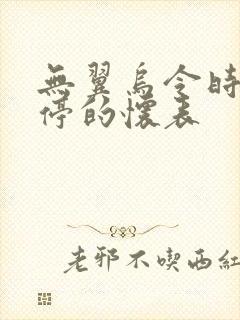 無翼鳥令時
停的懷表
老邪不喫西紅